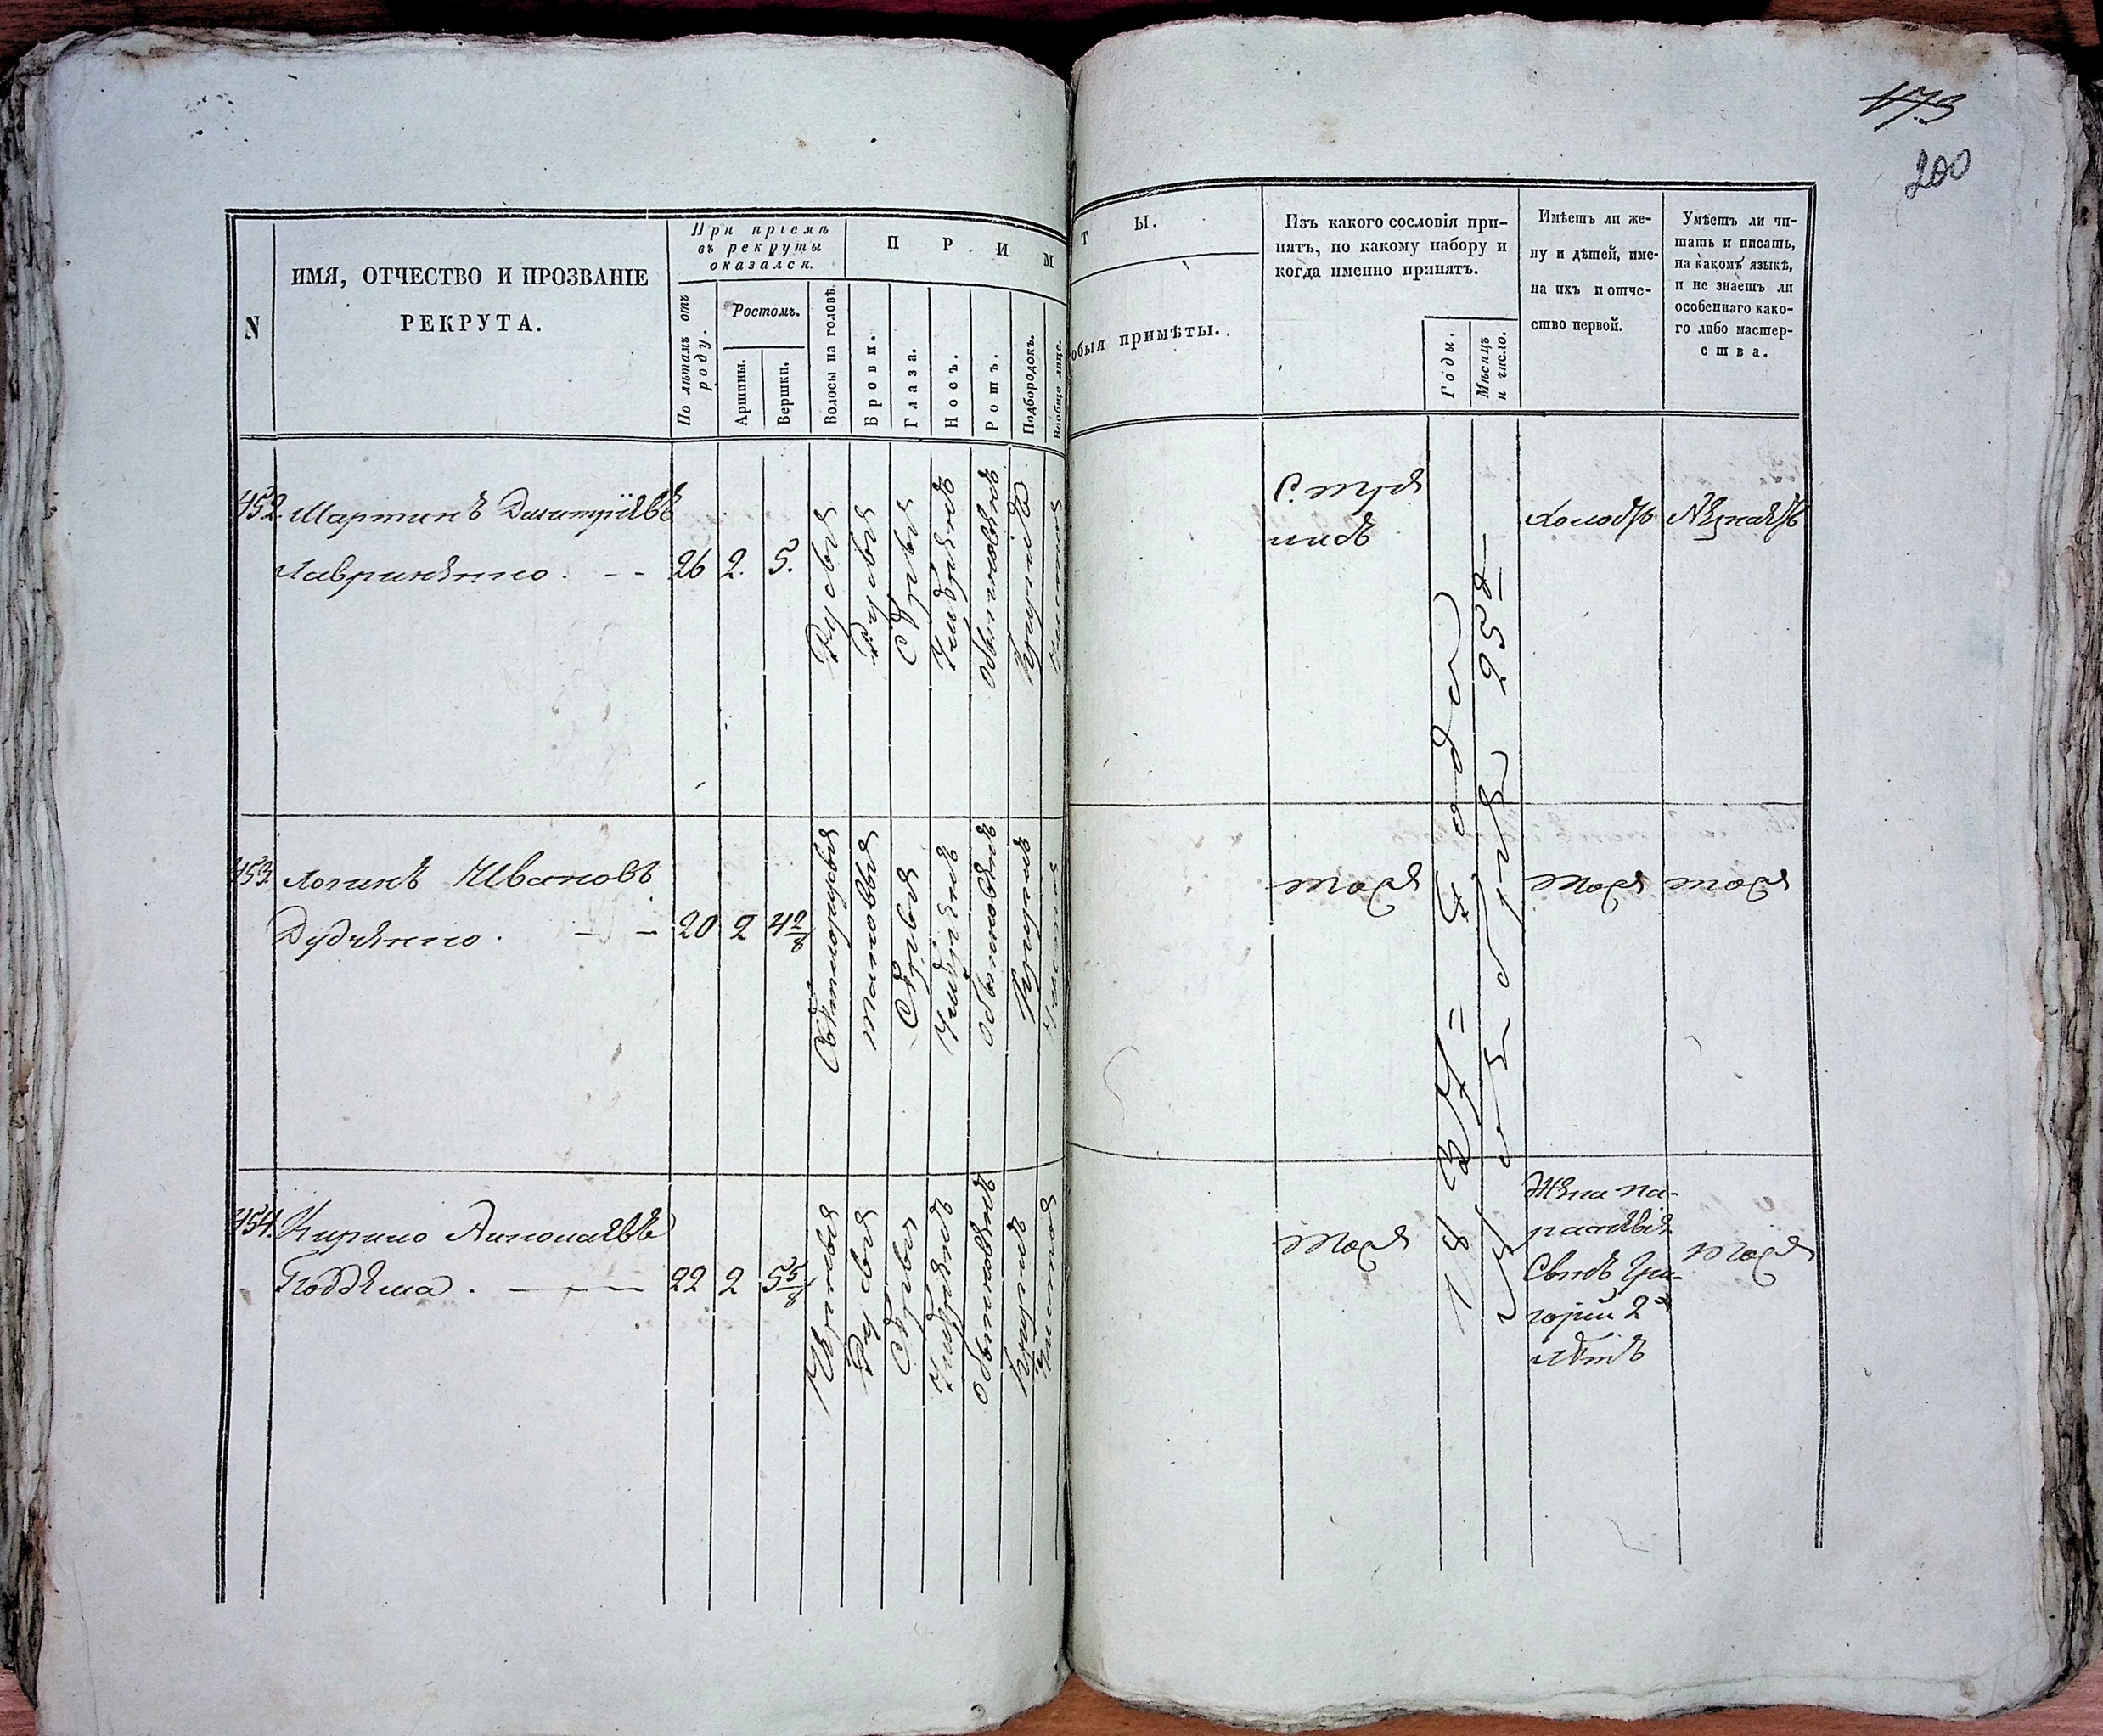 173
200
N
ИМЯ, ОТЧЕСТВО И ПРОЗВАНІЕ
РЕКРУТА.
При пріемѣ
въ рекруты
оказался.
По лѣтамъ отъ
роду.
Ростомъ.
Аршины.
Вершки.
П Р И М
Волосы на головѣ.
Брови.
Глаза.
Носъ.
Ротъ.
Подбородокъ.
Вообще лице.
Т Ы.
обыя примѣты.
Изъ какого сословія при-
нятъ, по какому набору и
когда именно принятъ.
Годы.
Мѣсяцъ
и число.
Имѣетъ ли же-
ну и дѣтей, име-
на ихъ и отче-
ство первой.
Умѣетъ ли чи-
тать и писать,
на какомъ языкѣ,
и не знаетъ ли
особеннаго како-
го либо мастер-
ства.
452. Мартинъ Дмитріевъ
Лавриненко. 26 2. 5.
Русыя
Русыя
Сѣрыя
Умѣренъ
Обыкновенъ
Кругліи
Чистое
Холостъ
Незнаетъ
453. Логинъ Ивановъ
Дудченко. 20 2 4 2/8
Свѣтлорусыя
таковыя
Сѣрыя
Умѣренъ
обыкновенъ
Круглъ
Чистое
тоже
тоже
тоже
454. Кирило
Поддема. 22 2 5 5/8
Черныя
Русыя
Сѣрыя
Умѣренъ
Обыкновенъ
Круглъ
Чистое
тоже
Жена Па-
раскевія
Сынъ Гри-
горій 2
лѣтъ
тоже
1834 = Года
25